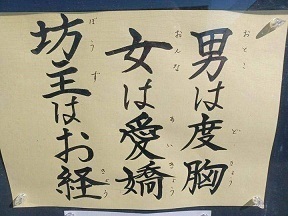 男は度胸
女は愛嬌
坊主はお経